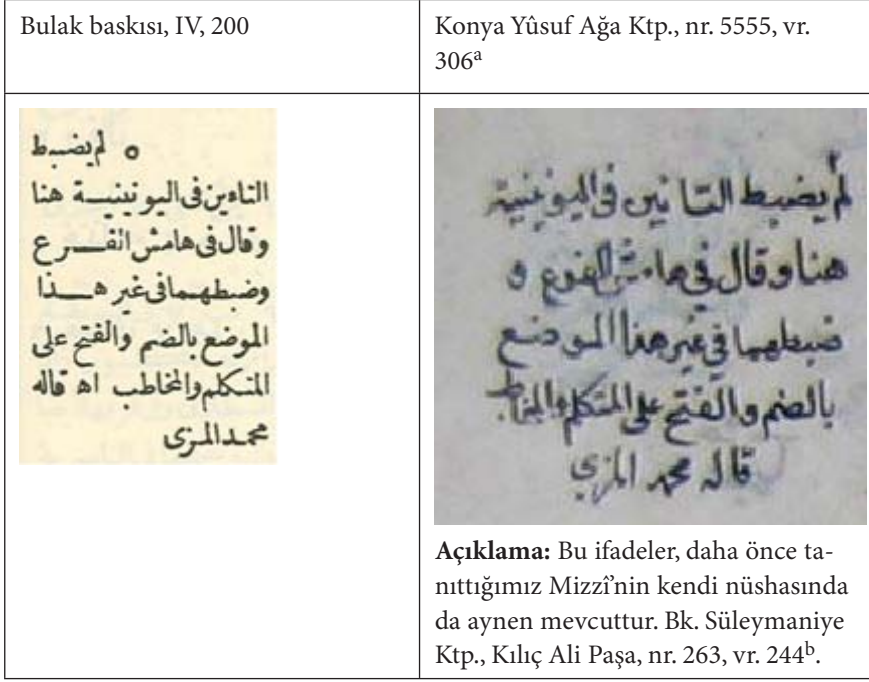 Bulak baskısı, IV, 200
Konya Yûsuf Ağa Ktp., nr. 5555, vr.
306ᵃ
ه لم يضبط
التاءين فى اليونينية هنا
وقال فى هامش الفرع
وضبطهما فى غير هذا
الموضع بالضم والفتح على
المتكلم والمخاطب اه قاله
محمد المزى
لم يضبط التائين في اليونينية
هنا وقال في هامش الفرع و
ضبطهما في غير هذا الموضع
بالضم والفتح على المتكلم والمخاطب
قاله محمد المزي
Açıklama: Bu ifadeler, daha önce ta-
nıttığımız Mizzî’nin kendi nüshasında
da aynen mevcuttur. Bk. Süleymaniye
Ktp., Kılıç Ali Paşa, nr. 263, vr. 244ᵇ.